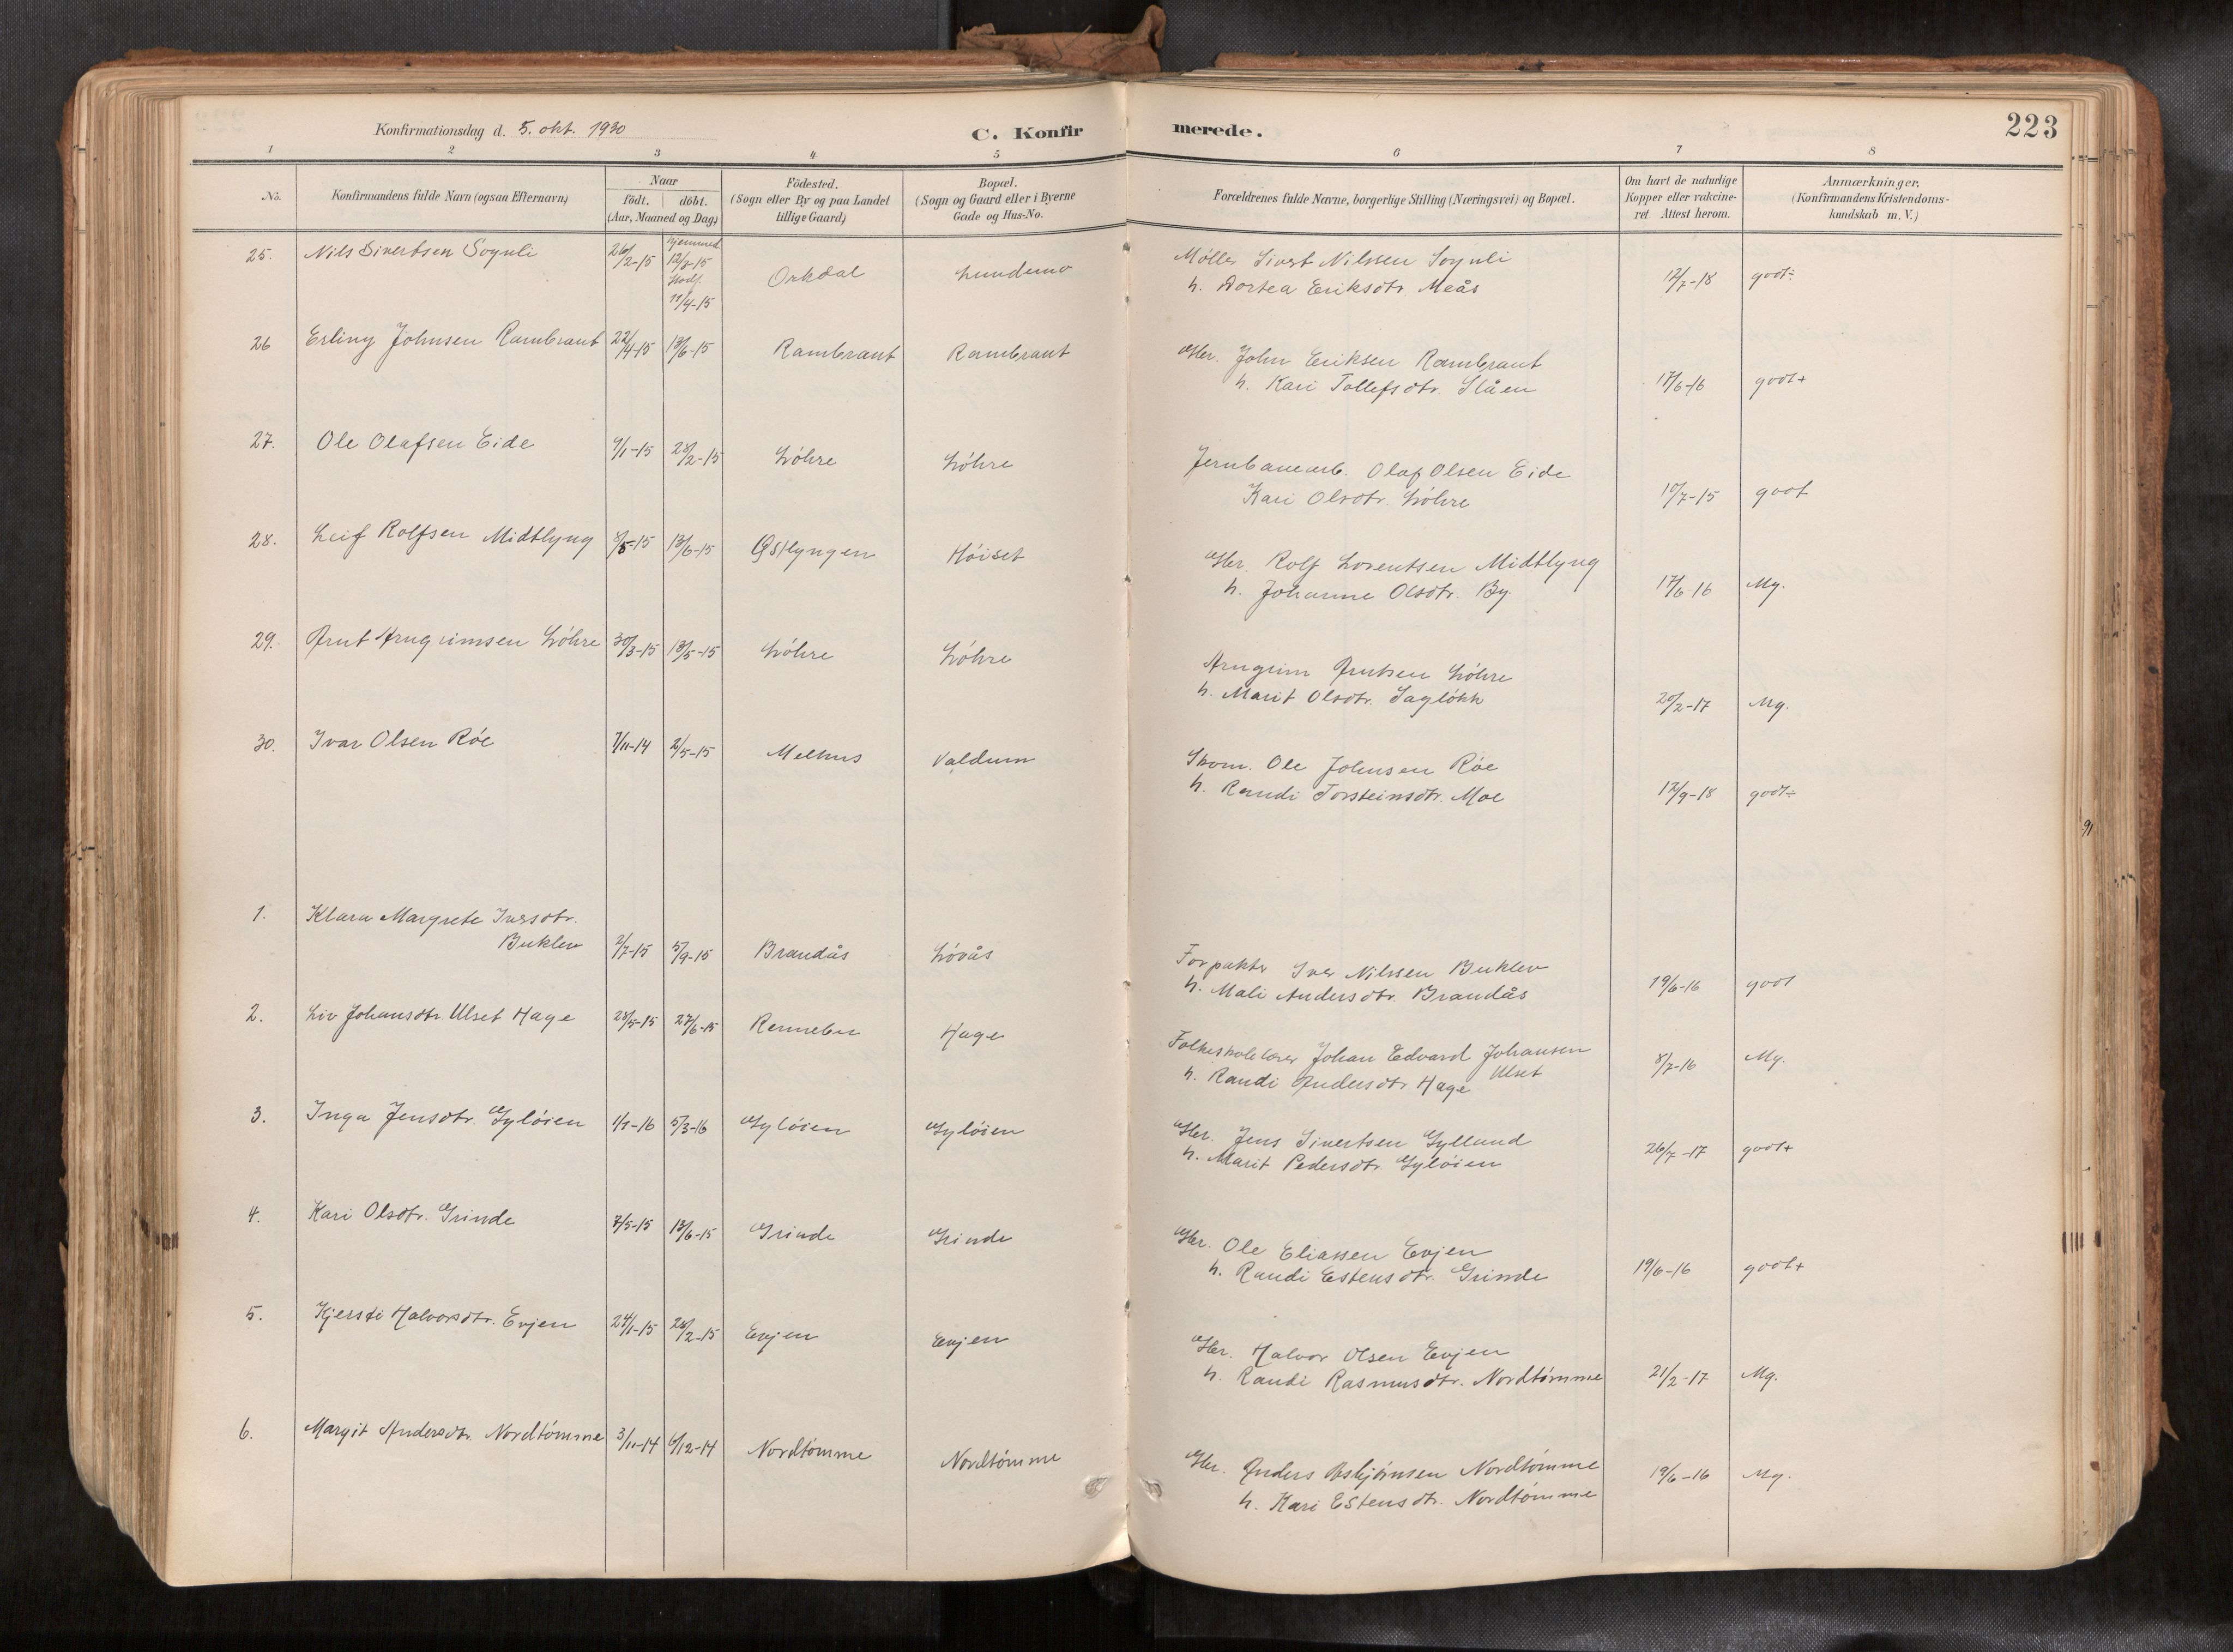 Konfirmationsdag d. 5. okt. 1930
C. Konfirmerede.
223
1 2 3 4 5 6 7 8
No. Konfirmandens fulde Navn (ogsaa Efternavn) Naar födt. döbt. (Aar, Maaned og Dag) Födested. (Sogn eller By og paa Landet tillige Gaard) Bopæl. (Sogn og Gaard eller i Byerne Gade og Hus-No. Forældrenes fulde Navne, borgerlige Stilling (Næringsvei) og Bopæl. Om havt de naturlige Kopper eller vakcineret Attest herom. Anmærkninger. (Konfirmandens Kristendomskundskab m. V.)
25. Nils Sivertsen Sognli 26/2-15 hjemmed. 12/3-15 Stadf. 11/4-15 Orkdal Lundemo Møller Sivert Nilssen Sognli
h. Dortea Eriksdtr. Meås 12/7-18 godt÷
26 Erling Johnsen Rambraut 22/4-15 13/6-15 Rambraut Rambraut Gbr. John Eriksen Rambraut
h. Kari Tollefsdtr. Slåen 17/6-16 godt+
27. Ole Olafsen Eide 9/1-15 28/2-15 Løhre Løhre Jernbanearb. Olaf Olsen Eide
Kari Olsdtr. Løhre 10/7-15 godt
28. Leif Rolfsen Midtlyng 8/5-15 13/6-15 Østlyngen Høiset Gbr. Rolf Lorentsen Midtlyng
h. Johanne Olsdtr. By. 17/6-16 Mg.
29. Arnt Arngrimsen Løhre 30/3-15 13/5-15 Løhre Løhre Arngrim Arntsen Løhre
h. Marit Olsdtr. Sagløkk 20/2-17 Mg.
30. Ivar Olsen Røe 7/11-14 2/5-15 Melhus Valdum Skom. Ole Johnsen Røe
h. Randi Torsteinsdtr. Moe 12/9-18 godt÷
91
1. Klara Margrete Iversdtr.
Buklev 2/7-15 5/9-15 Brandås Løvås Forpakter Iver Nilssen Buklev
h. Mali Andersdtr. Brandås 19/6-16 godt
2. Liv Johansdtr. Ulset Hage 28/5-15 27/6-15 Rennebu Hage Folkeskolelærer Johan Edvard Johansen Ulset
h. Randi Andersdtr Hage 8/7-16 Mg.
3. Inga Jensdtr. Gyløien 1/1-16 5/3-16 Gyløien Gyløien Gbr. Jens Sivertsen Gylland
h. Marit Pedersdtr. Gyløien 26/7-17 godt+
4. Kari Olsdtr. Grinde 7/5-15 13/6-15 Grinde Grinde Gbr. Ole Eliassen Evjen
h. Randi Estensdtr. Grinde 19/6-16 godt+
5. Kjersti Halvorsdtr. Evjen 24/1-15 28/2-15 Evjen Evjen Gbr. Halvor Olsen Evjen
h. Randi Rasmusdtr. Nordtømme 21/2-17 Mg.
6. Margit Andersdtr. Nordtømme 3/11-14 6/12-14 Nordtømme Nordtømme Gbr. Anders Asbjørnsen Nordtømme
h. Kari Estensdtr. Nordtømme 19/6-16 Mg.